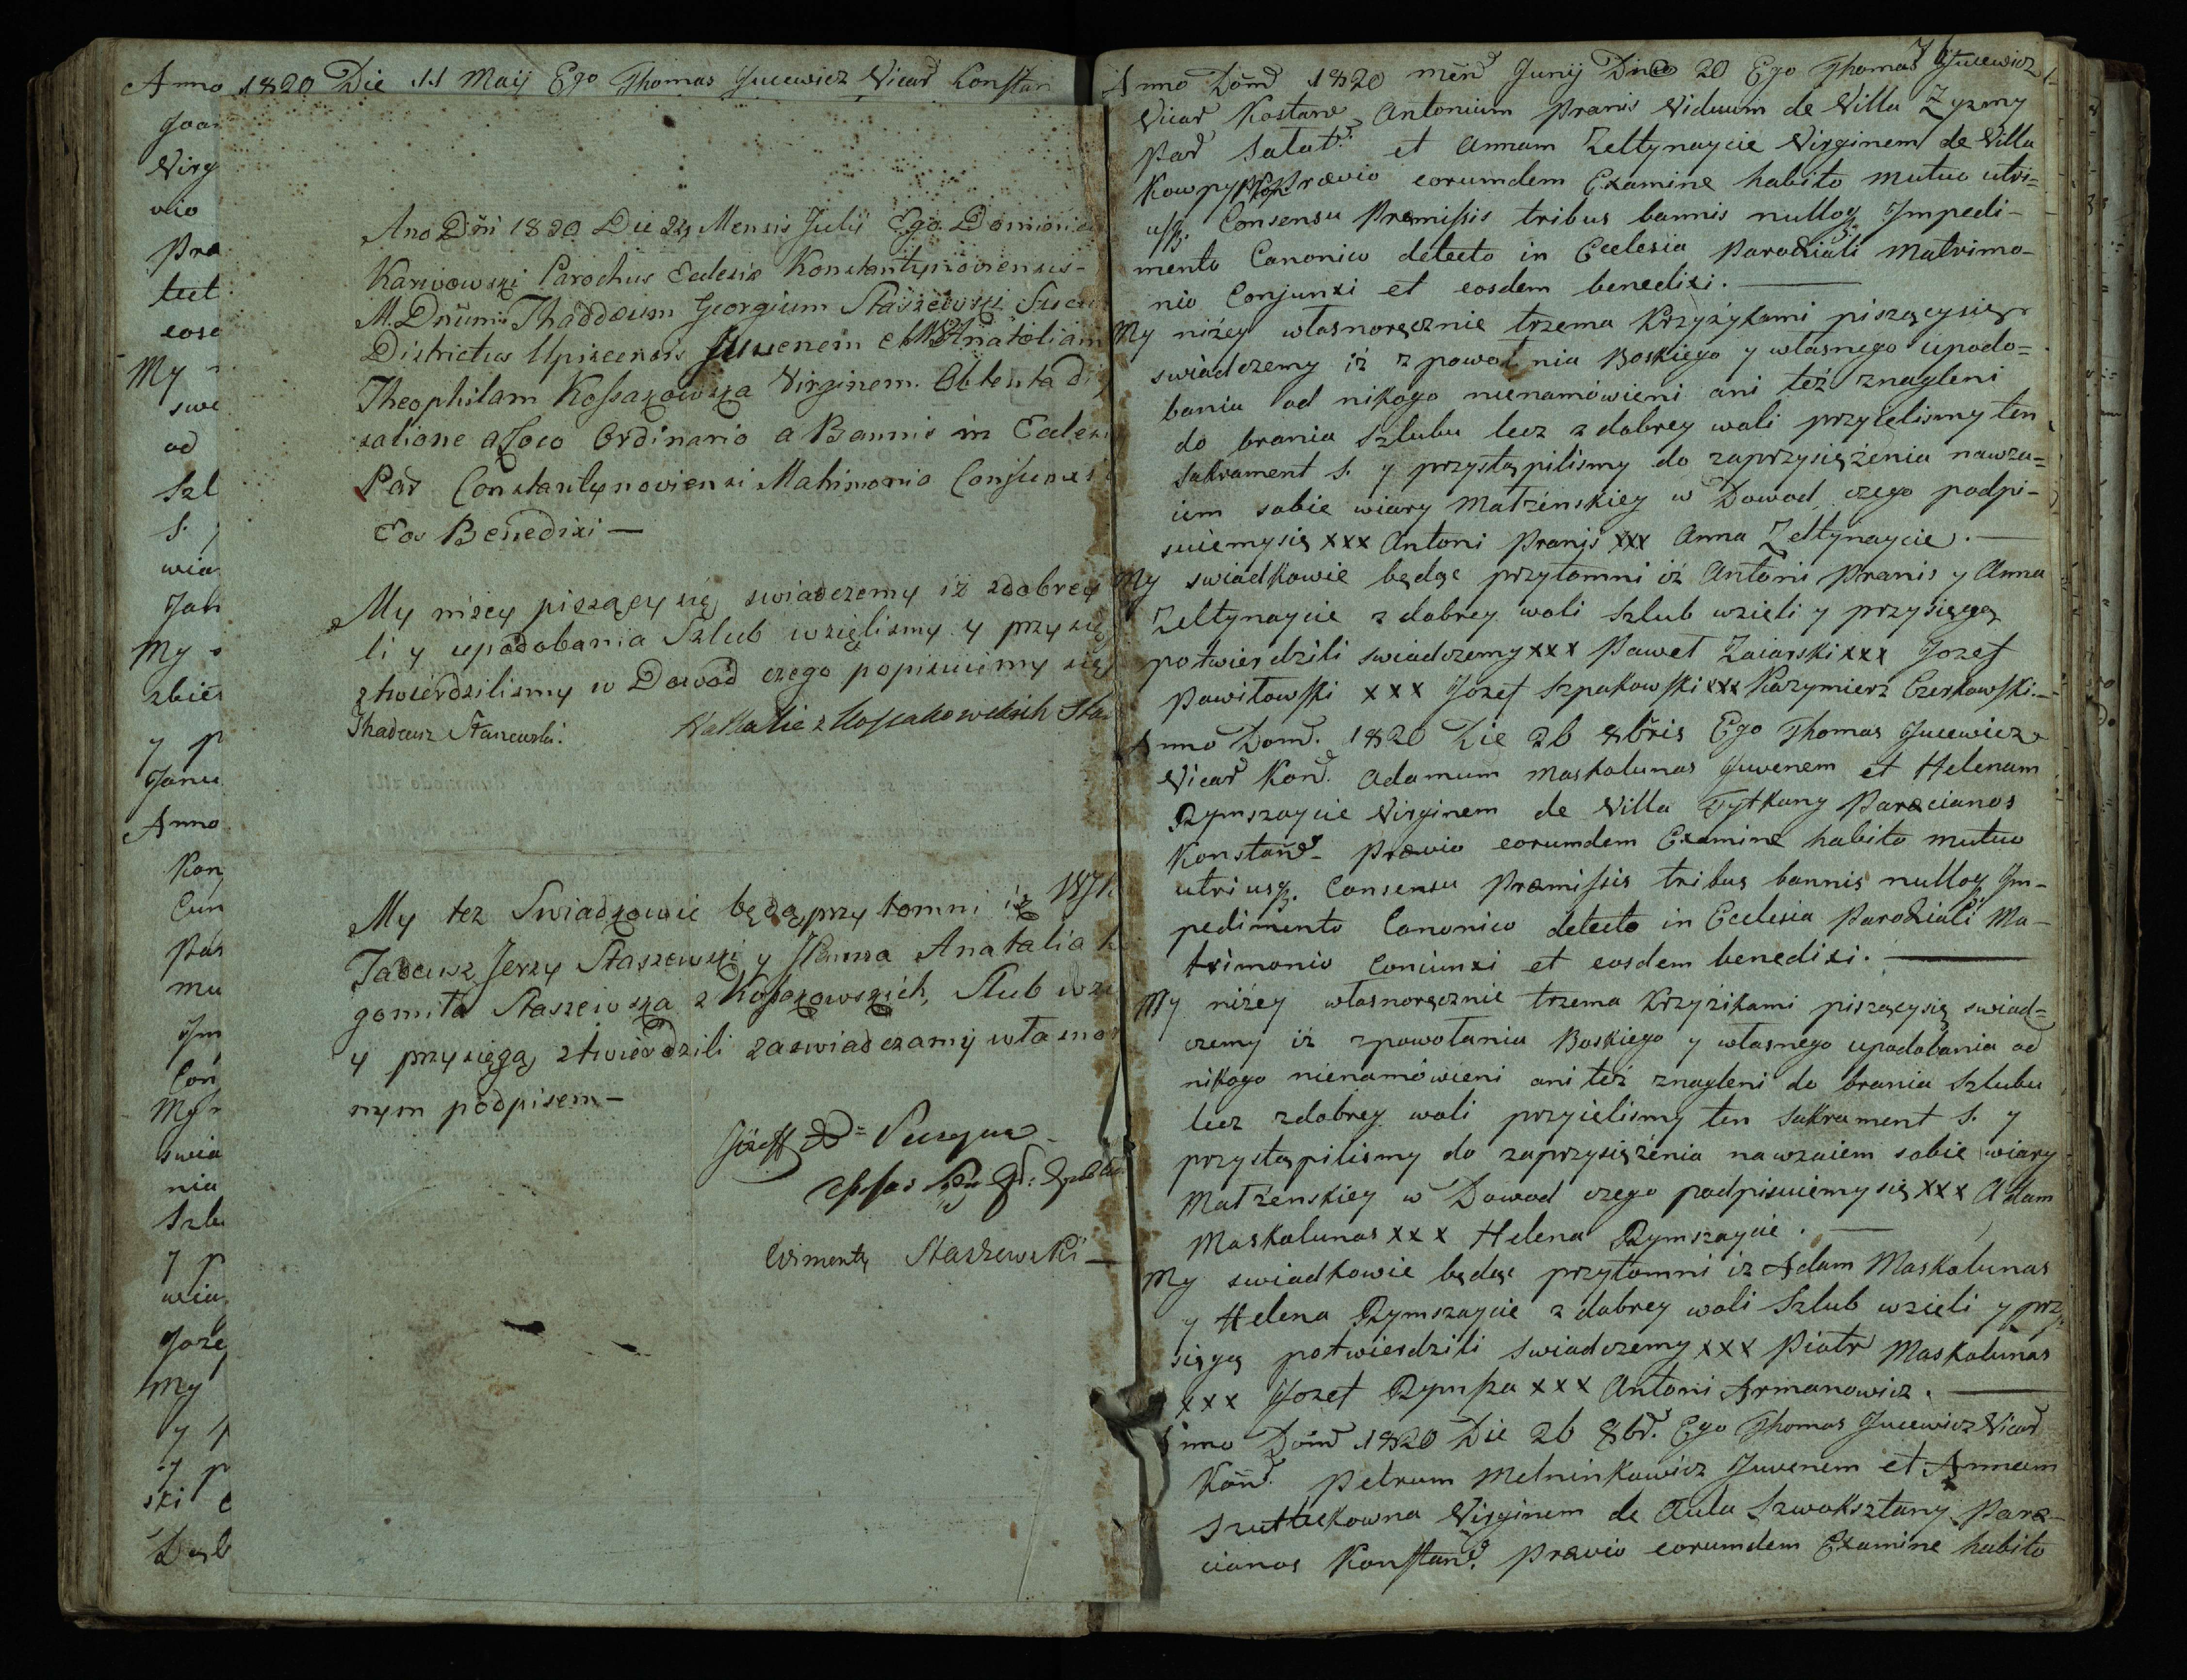 Anno 1820 Die 11 Maij Ego Thomas Jucewicz Vicar Constan
Joan
Virg
vio
Præ
tect
eosd
My
swe
od
Szl
S.
wia
Jan
My
zbier
y p
Janu
Anno
Kon
Cun
Par
mu
Im
Con
My
swia
nia
Szlu
y p
wia
Joze
My
y
y p
ski
Dąb
Ano Dñi 1820 Die 24 Mensis Julij Ego Dominic
Karwowski Parochus Ecclesiæ Konstantynoviensis-
M. Dnum Thaddæum Georgium Staszewski
Districtus Upitcensis Juvenem et Anatoliam
Theophilam Kossakowska Virginem. Obtenta di
satione a Loco Ordinario a Bannis in Eccles
Par Constantynoviensi Matrimonio Conjunxi
Eos Benedixi —
My niżey piszący się swiadczemy iż zdobrey
li y upodobania Szlub wzięlismy y przysię
ztwierdzilismy w Dowod czego popisuiemy się
Thadeusz Staszewski. Nattalie z Kossakowskich Sta
My tez Swiadkowie będąc przytomni iż
Tadeusz Jerzy Staszewski y Panna Anatalia
gomiła Staszewska z Kossakowskich, Slub wzi
y przysięgą ztwierdzili zaswiadczamy własno
nym podpisem —
Józeff
Staszewski —
Anno Dom̃ 1820 men̄ Junij Die 20 Ego Thomas Jucewicz
Vicar Kostan Antonium Pranis Viduum de Villa Zyzmy
Par Salat et Annam Zeltynaycie Virginem de Villa
Prævio eorumdem Examine habito mutuo utri=
usq. Consensu Præmissis tribus bannis nulloq Impedi-
mento Canonico detecto in Ecclesia Parochiali Matrimo-
nio Conjunxi et eosdem benedixi. —
My niżey własnoręcznie trzema Krzyżykami piszącysię
swiadczemy iż z powołnia Boskiego y własnego upodo=
bania od nikogo nienamówieni ani też znagleni
do brania Szlubu lecz z dobrey woli przyielismy ten
Sakrament S. y przystąpilismy do zaprzysiężenia nawza=
iem sobie wiary Małżenskiey w Dowod czego podpi-
suiemysię xxx Antoni Pranis xxx Anna Zeltynaycie. —
My swiadkowie będąc przytomni iż Antoni Pranis y Anna
Zeltynaycie z dobrey woli Szlub wzieli y przysięgą
potwierdzili swiadczemy xxx Paweł Zaiarski xxx Jozef
Pawiłowski xxx Jozef Szpakowski xxx Kazymierz Czerkowski. —
Anno Dom. 1820 Die 26 8bris Ego Thomas Jucewicz
Vicar Kon. Adamum Maskalunas Juvenem et Helenam
Rymszaycie Virginem de Villa Tytkany Paræcianos
Konstan̄ - Prævio eorumdem Examine habito mutuo
utriusq. Consensu Præmissis tribus bannis nulloq Im-
pedimento Canonico detecto in Ecclesia Parochiali Ma-
trimonio Coniunxi et eosdem benedixi. —
My niżey własnoręcznie trzema Krzyżikami piszącysię swiad=
czemy iż zpowołania Boskiego y własnego upodobania od
nikogo nienamówieni ani też znagleni do brania Szlubu
lecz zdobrey woli przyielismy ten Sakrament S. y
przystąpilismy do zaprzysiężenia nawzaiem sobie wiary
Małżenskiey w Dowod czego podpisuiemysię xxx Adam
Maskalunas xxx Helena Rymszaycie. —
My swiadkowie będąc przytomni iz Adam Maskalunas
y Helena Rymszaycie z dobrey woli Szlub wzieli y przy
sięgą potwierdzili swiadczemy xxx Piotr Maskalunas
xxx Jozef Rymsza xxx Antoni Armanowicz. —
Anno Dom̃ 1820 Die 26 8br. Ego Thomas Jucewicz Vicar
Kon̄. Petrum Melninkowicz Juvenem et Annam
Szuttukowna Virginem de Aula Szwoksztany Paræ-
cianos Konstan. Prævio eorumdem Examine habito